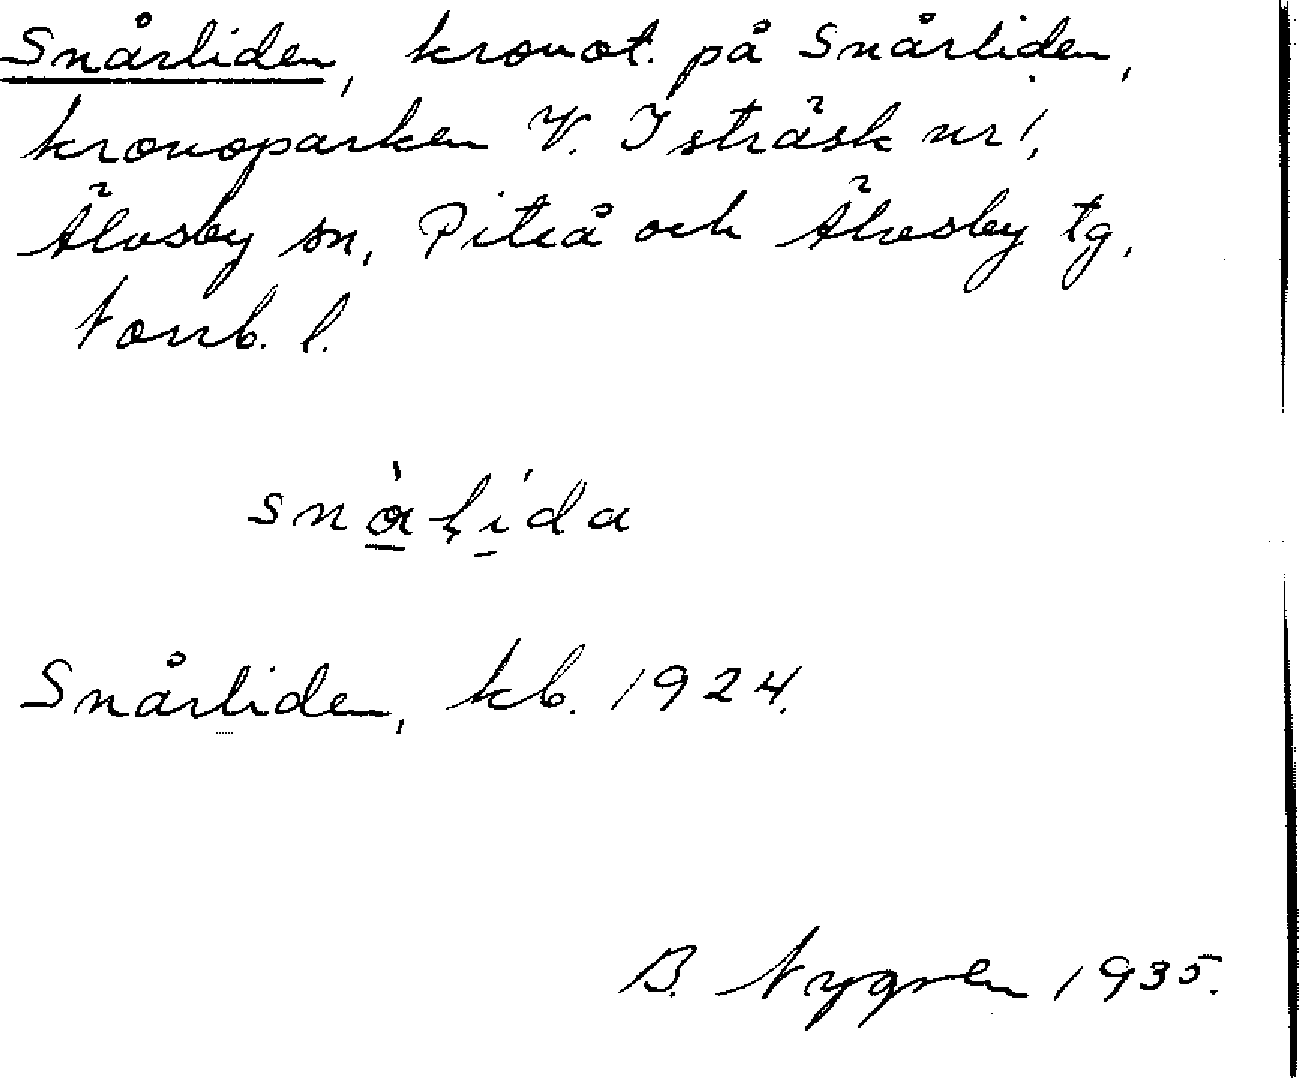 Snårliden, kronot. på Snårliden,
kronoparken V. Isträsk nr 1,
Älvsby sn, Piteå och Älvsby tg,
Norrb. l.
Snårliden, kb. 1924.
B. Nygren 1935.